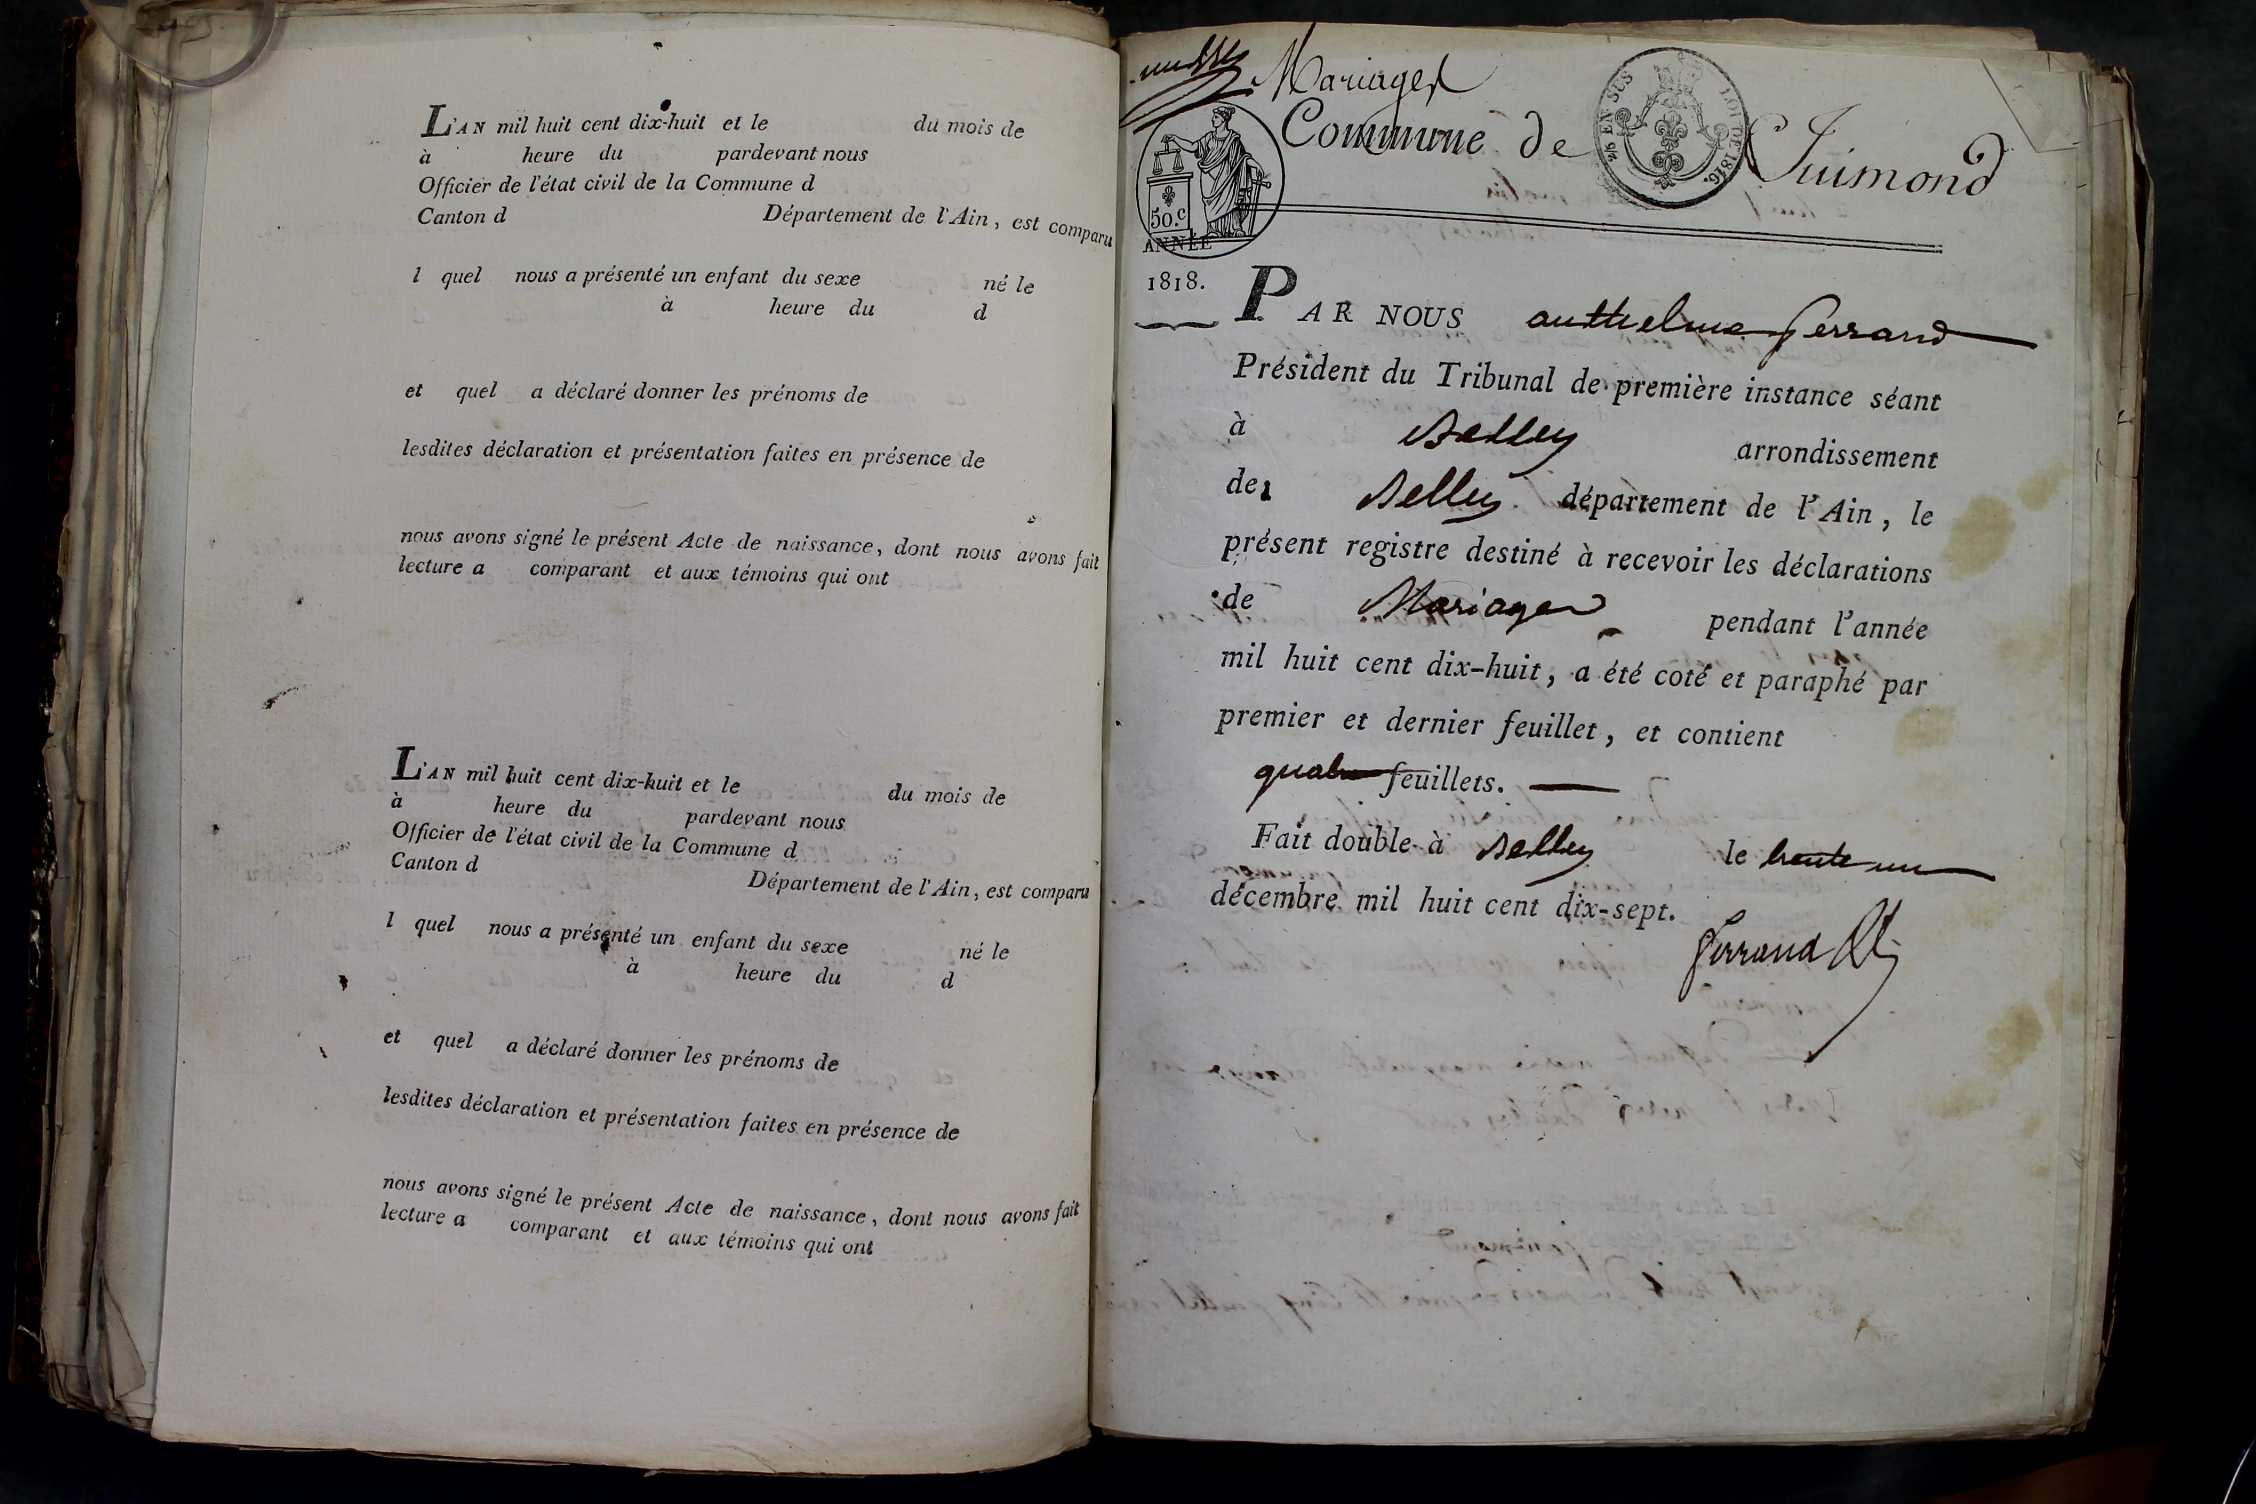 L'AN mil huit cent dix-huit et le du mois de
à heure du pardevant nous
Officier de l'état civil de la Commune d
Canton d Département de l'Ain, est comparu
l quel nous a présenté un enfant du sexe né le
à heure du d
et quel a déclaré donner les prénoms de
lesdites déclaration et présentation faites en présence de
nous avons signé le présent Acte de naissance, dont nous avons fait
lecture a comparant et aux témoins qui ont
L'AN mil huit cent dix-huit et le du mois de
à heure du pardevant nous
Officier de l'état civil de la Commune d
Canton d
Département de l'Ain, est comparu
l quel nous a présenté un enfant du sexe né le
à heure du d
et quel a déclaré donner les prénoms de
lesdites déclaration et présentation faites en présence de
nous avons signé le présent Acte de naissance, dont nous avons fait
lecture a comparant et aux témoins qui ont
Mariages
Commune de Juimond
EN SUS LOI DE 1816.
50.c
ANNÉE
1818.
PAR NOUS anthelme ferrand
Président du Tribunal de première instance séant
à Belley arrondissement
de Belley département de l'Ain, le
présent registre destiné à recevoir les déclarations
de Mariages pendant l'année
mil huit cent dix-huit, a été coté et paraphé par
premier et dernier feuillet, et contient
quatre feuillets.
Fait double à Belley le trente un
décembre mil huit cent dix-sept.
ferrand